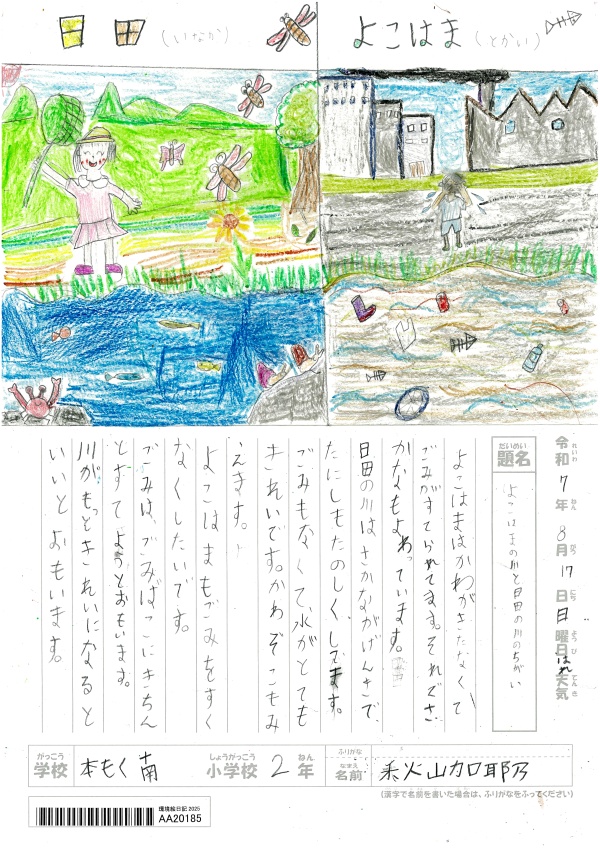 日田(いなか)
よこはま(とかい)
令和7年8月17日日曜日はれ天気
れいわ ねん がつ にち ようび てんき
だいめい
題名
よこはまの川と日田の川のちがい
よこはまはかわがきたなくて
ごみがすてられてます。それでさ
かなもよわっています。
日田の川はさかながげんきで、
たにしもたのしく、してます。
ごみもなくて、水がとても
きれいです。かわぞこもみ
えます。
よこはまもごみをすく
なくしたいです。
ごみは、ごみばこにきちん
とすてようとおもいます。
川がもっときれいになると
いいとおもいます。
がっこう
学校
本もく南
しょうがっこう
小学校
2
ねん
年
ふりがな
なまえ
名前
加耶乃
(漢字で名前を書いた場合は、ふりがなをふってください)
環境絵日記 2025
AA20185